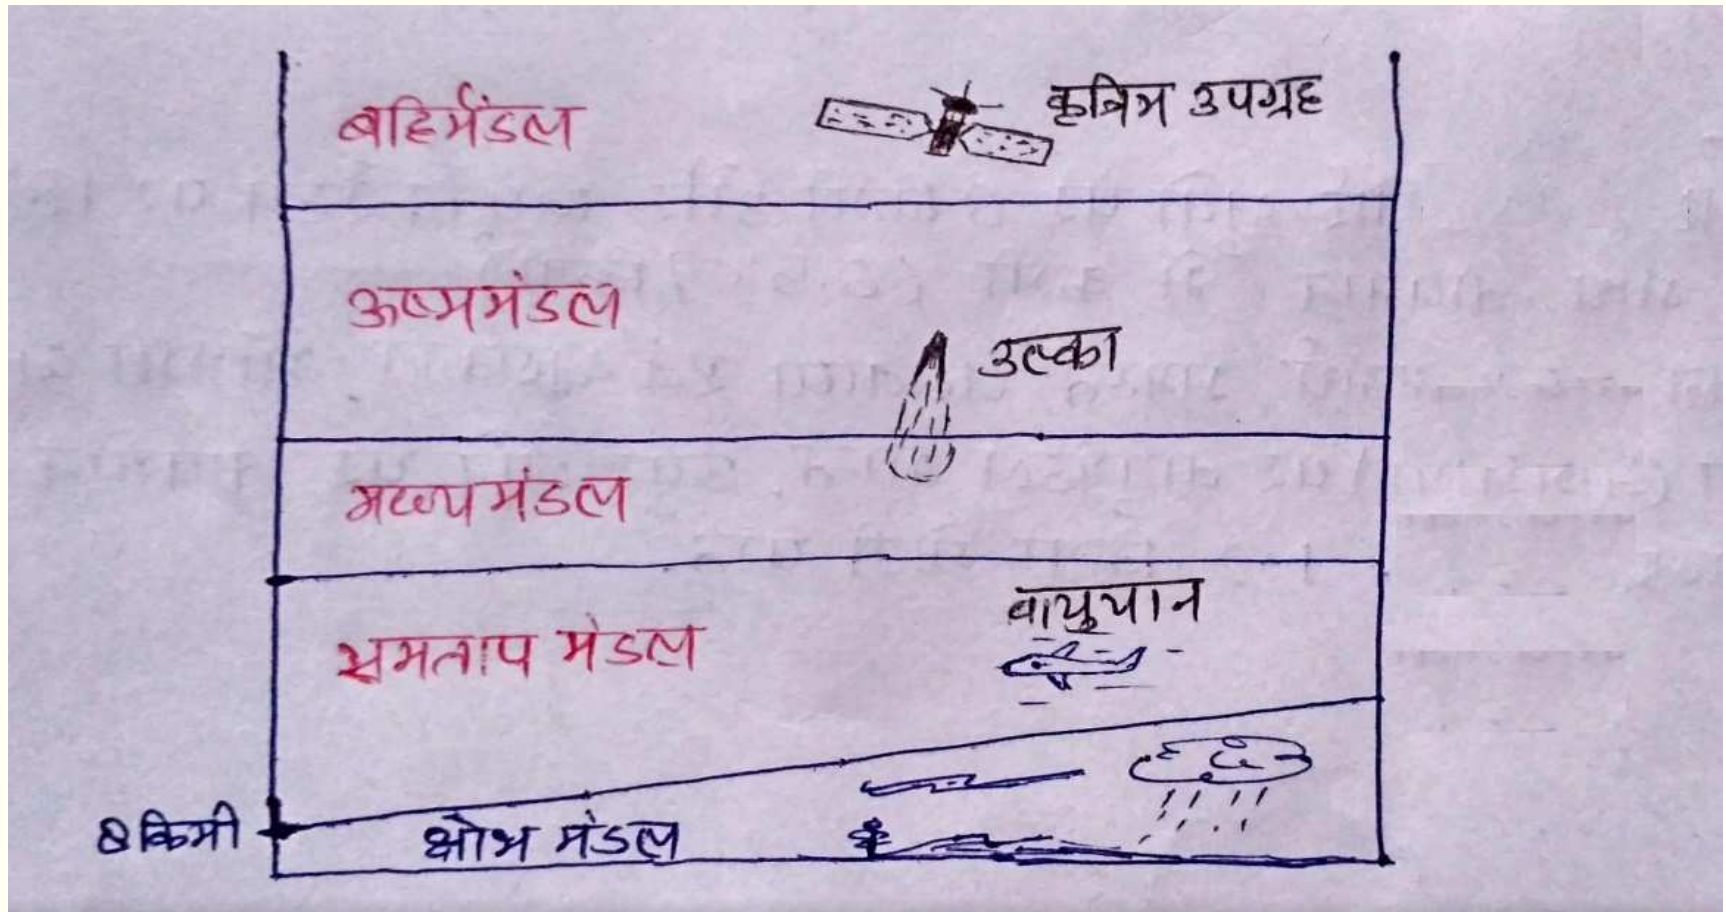 बहिर्मंडल
कृत्रिम उपग्रह
ऊष्ममंडल
उल्का
मध्यमंडल
वायुयान
समताप मंडल
8 किमी
क्षोभ मंडल